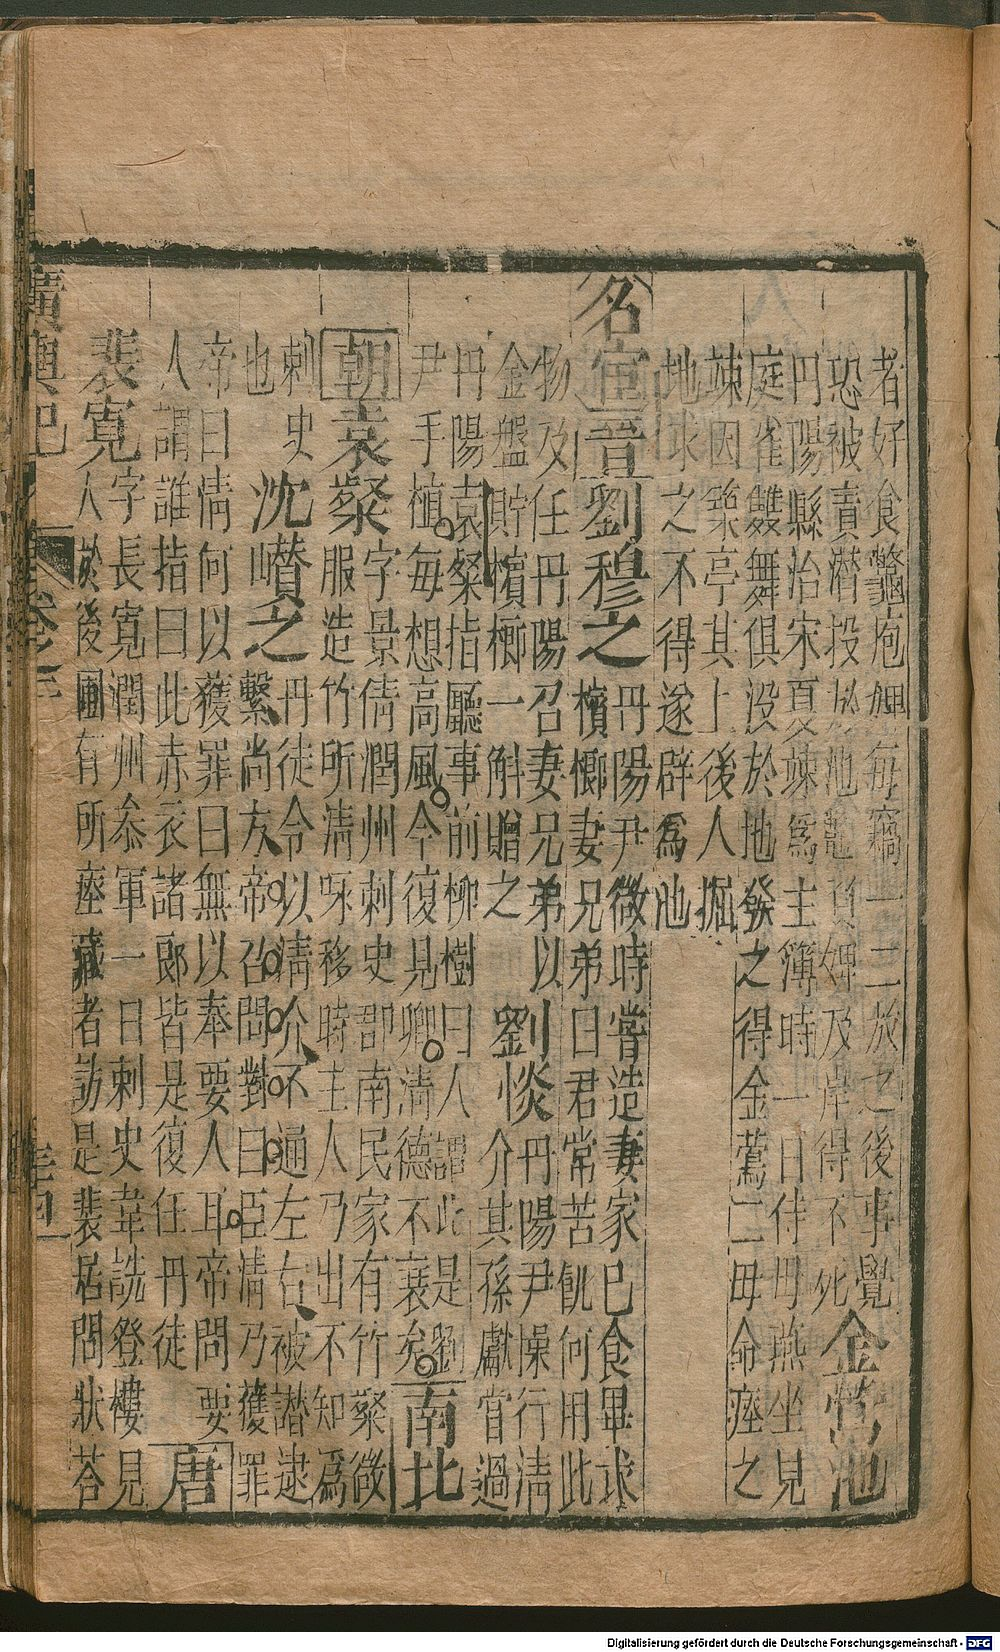 者好食鼈庖婢每竊一二放之後事覺
恐被責潛投於池鼈負婢及岸得不死
金鶯池
丹陽縣治宋夏竦為主簿時一日侍母燕坐見
庭雀雙舞俱沒於地發之得金鶯二母命瘞之
竦因築亭其上後人掘
地求之不得遂辟為池
名宦晉劉穆之
丹陽尹微時嘗造妻家巳食畢求
檳榔妻兄弟曰君常苦飢何用此
物及任丹陽召妻兄弟以
金盤貯檳榔一斛贈之
劉惔
丹陽尹操行清
介其孫獻嘗過
丹陽袁粲指廳事前柳樹曰人謂此是劉
尹手植每想高風今復見卿清德不衰矣
南北
朝袁粲
字景倩潤州刺史郡南民家有竹粲微
服造竹所清哦移時主人乃出不知為
刺史
也
沈巑之
丹徒令以清介不通左右被譖逮
繫尚友帝召問對曰臣清乃獲罪
帝曰清何以獲罪曰無以奉要人耳帝問要
人謂誰指曰此赤衣諸郎皆是復任丹徒
唐
裴寬
字長寬潤州叅軍一日刺史韋詵登樓見
人於後圃有所瘞藏者訪是裴居問狀荅
廣輿記
Digitalisierung gefördert durch die Deutsche Forschungsgemeinschaft - DFG